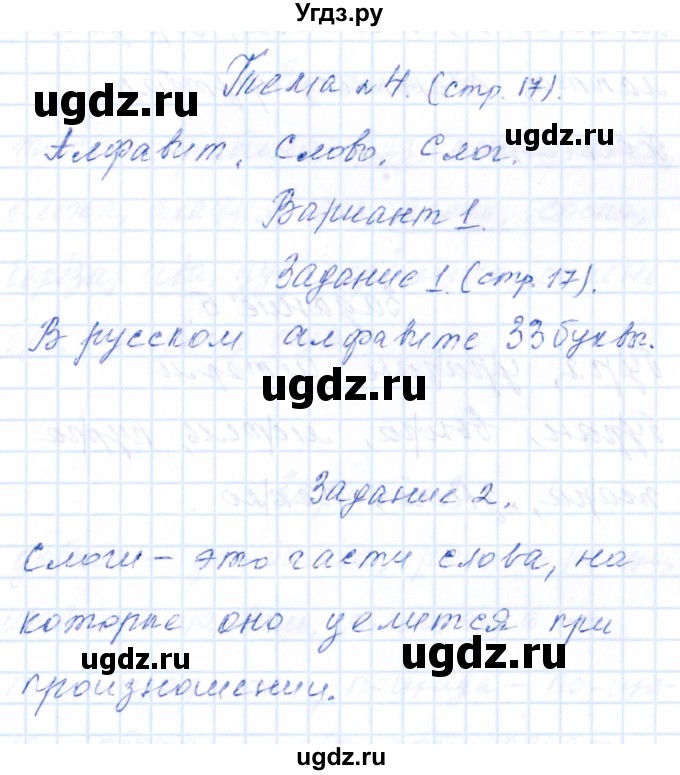 Угдз.ру
Тема №4. (стр. 17).
ugdz.ru
Алфавит. Слово. Слог.
Вариант 1.
Задание 1 (стр. 17).
В русском алфавите 33 буквы.
ugdz.ru
Задание 2.
Слоги – это части слова, на
которые оно целится при
ugdz.ru ugdz.ru
произношении.
ugdz.ru